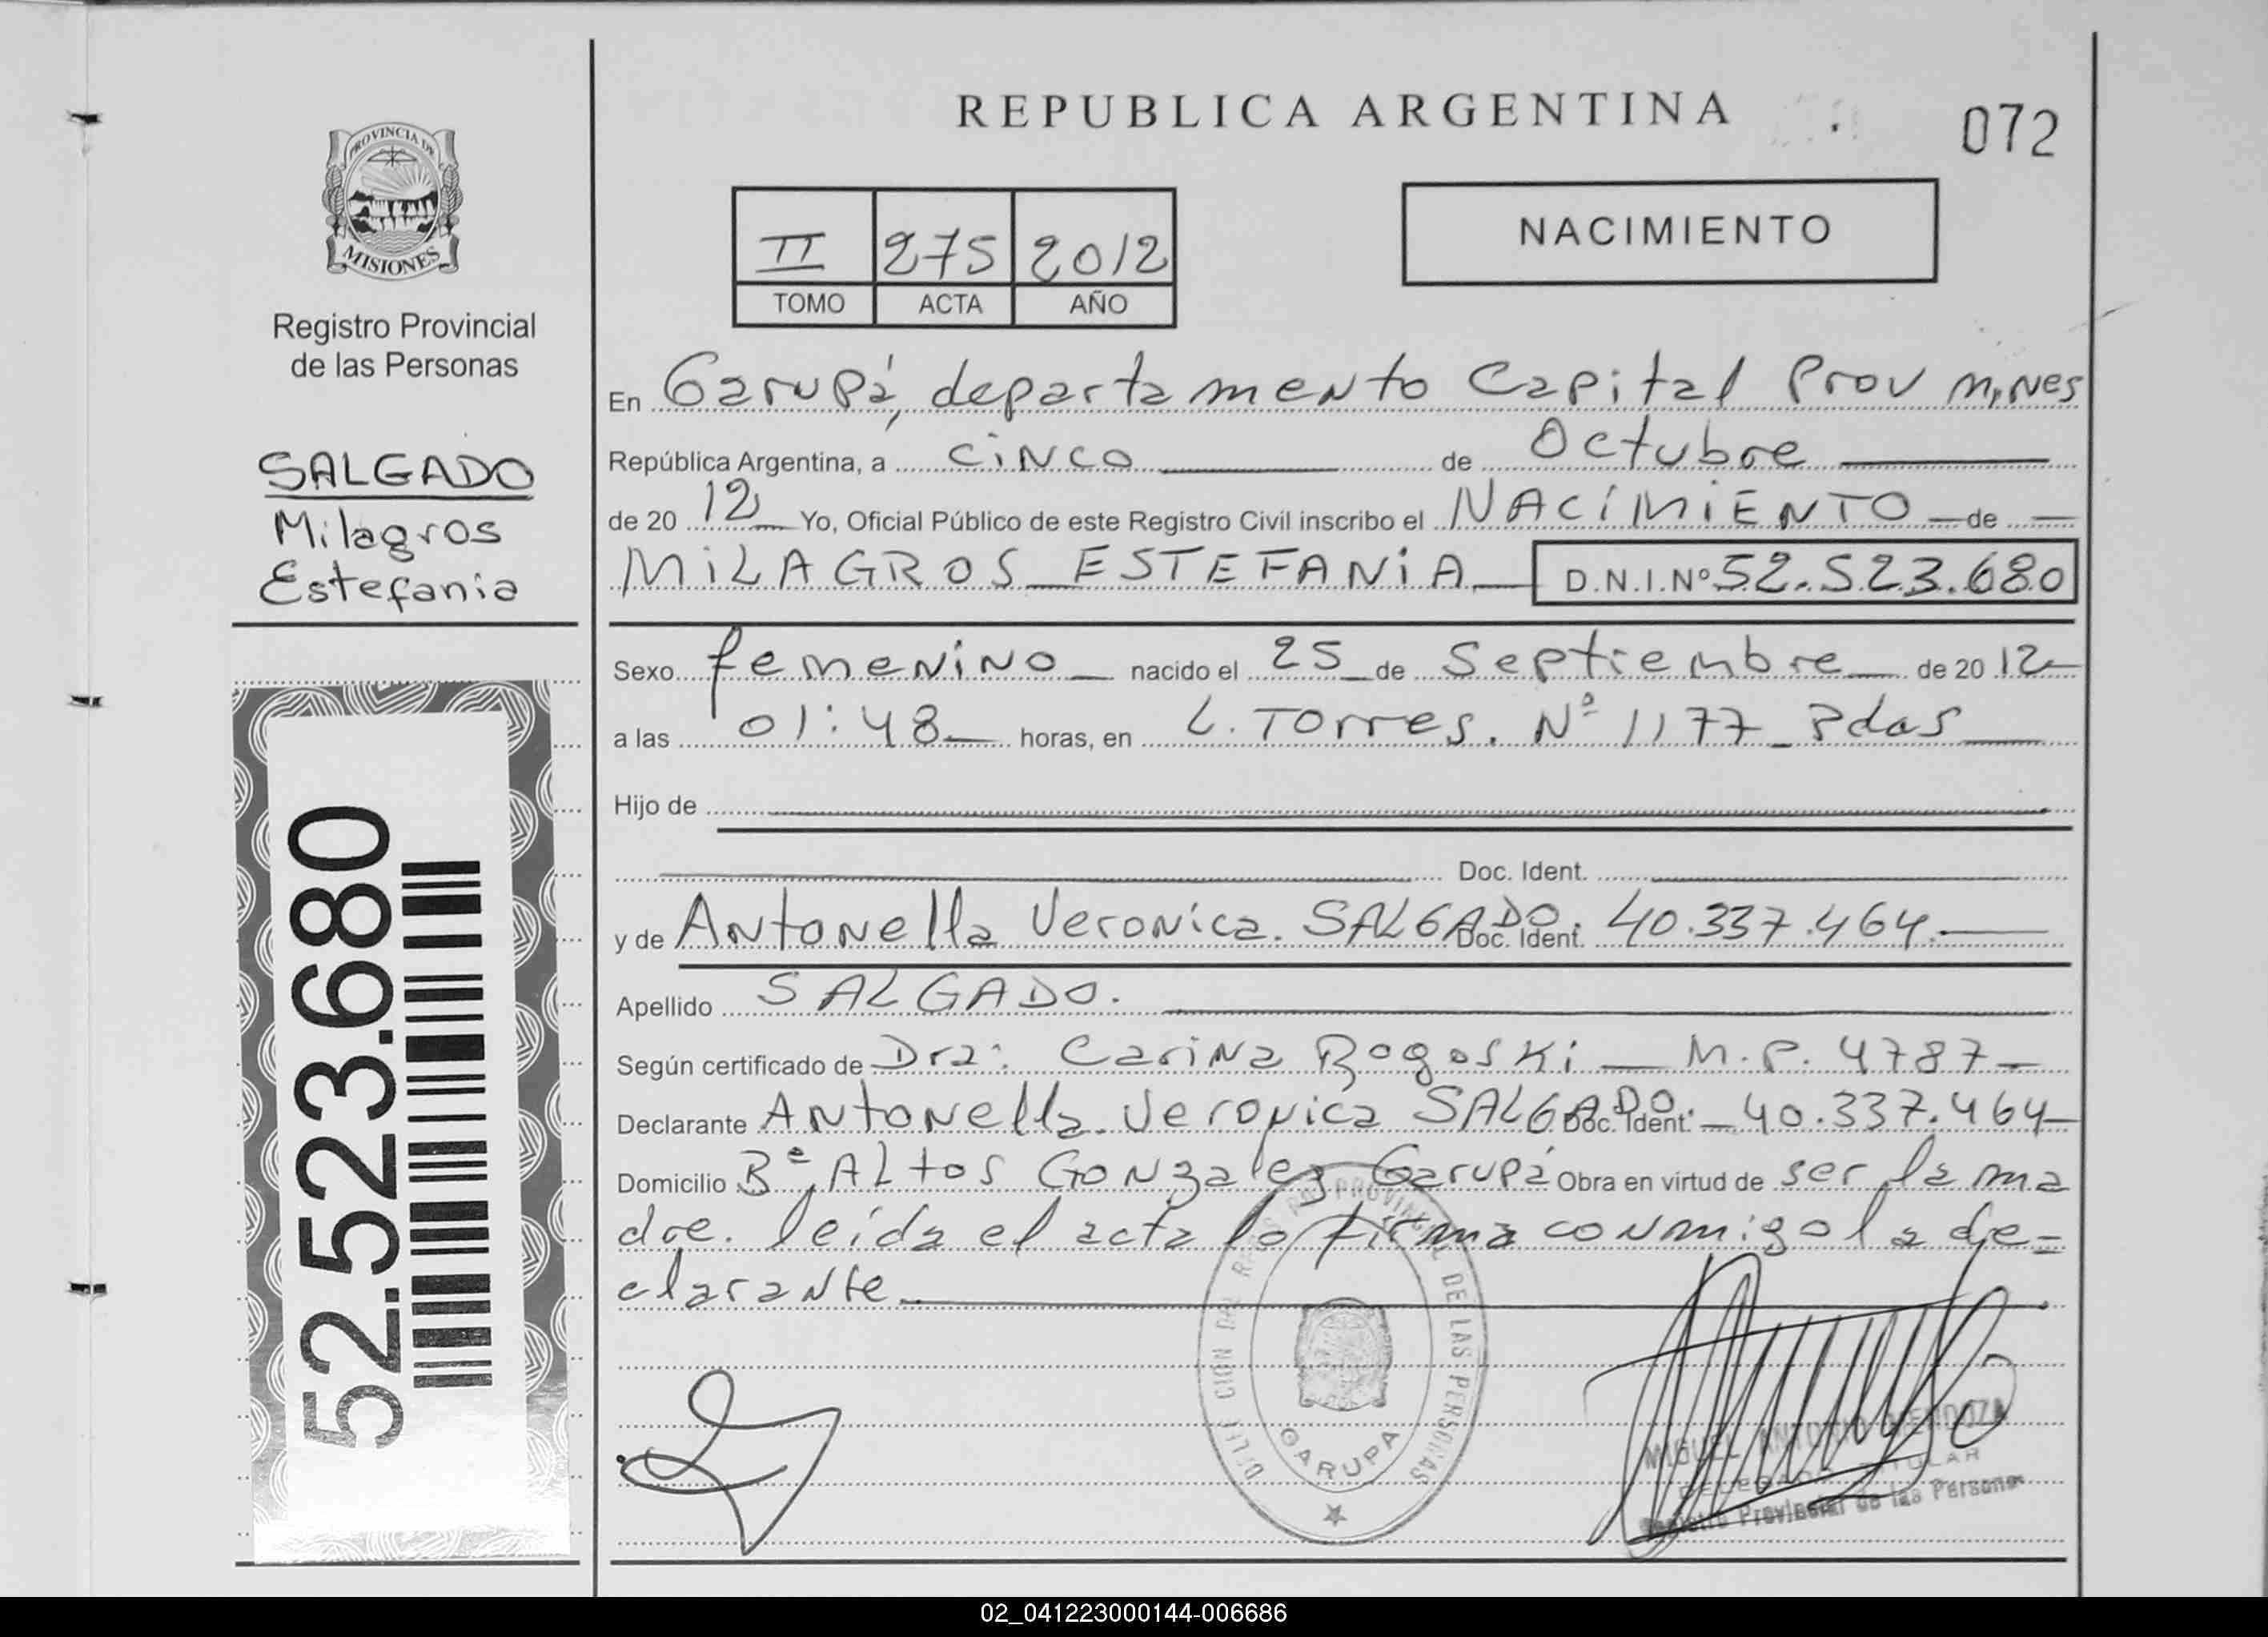 REPUBLICA ARGENTINA
072
PROVINCIA DE
MISIONES
Registro Provincial
de las Personas
SALGADO
Milagros
Estefania
52.523.680
II 275 2012
TOMO ACTA AÑO
NACIMIENTO
En Garupá, departamento Capital Prov Mnes
República Argentina, a cinco de Octubre
de 2012 Yo, Oficial Público de este Registro Civil inscribo el NACIMIENTO de
MILAGROS ESTEFANIA D.N.I.Nº 52.523.680
Sexo femenino nacido el 25 de Septiembre de 2012
a las 01:48 horas, en L. Torres. Nº 1177 Pdas
Hijo de
Doc. Ident.
y de Antonella Veronica. SALGADO. Doc. Ident. 40.337.464.
Apellido SALGADO.
Según certificado de Dra: Carina Rogoski M.P. 4787
Declarante Antonella Veronica SALGADO. Doc. Ident. 40.337.464
Domicilio Bº Altos Gonzalez Garupá Obra en virtud de ser la ma
dre. leida el acta lo firma conmigo la de=
clarante
DELEGACION DEL REGISTRO PROVINCIAL DE LAS PERSONAS
GARUPA
MIGUEL ANTONIO MENDOZA
DELEGADO TITULAR
Registro Provincial de las Personas
02_041223000144-006686